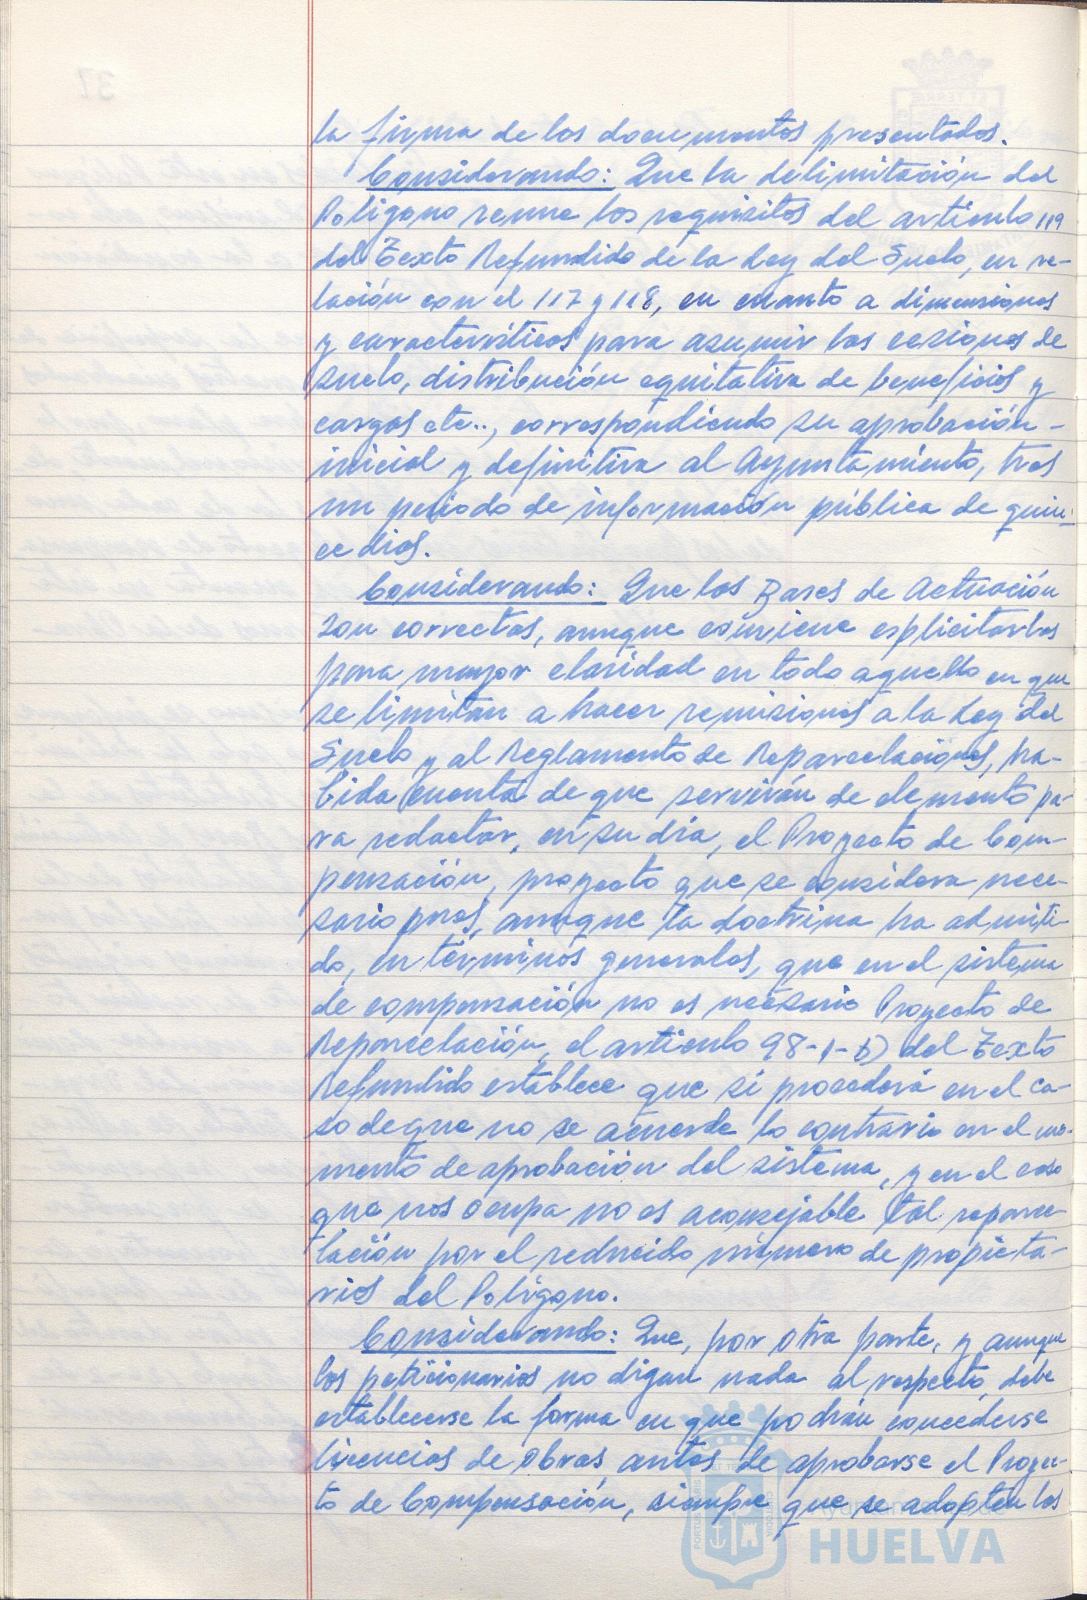 la firma de los documentos presentados.
Considerando: Que la delimitación del
Polígono reune los requisitos del artículo 119
del Texto Refundido de la Ley del Suelo, en re-
lación con el 117 y 118, en cuanto a dimensiones
y características para asumir las cesiones de
suelo, distribución equitativa de beneficios y
cargas etc.., correspondiendo su aprobación-
inicial y definitiva al Ayuntamiento, tras
un período de información pública de quin-
ce días.
Considerando: Que las Bases de Actuación
son correctas, aunque conviene esplicitarlas
para mayor claridad en todo aquello en que
se limitan a hacer remisiones a la Ley del
Suelo y al Reglamento de Reparcelaciones, ha-
bida cuenta de que servirán de elemento pa-
ra redactar, en su día, el Proyecto de Com-
pensación, proyecto que se considera nece-
sario pues, aunque la doctrina ha admiti-
do, en términos generales, que en el sistema
de compensación no es necesario Proyecto de
Reparcelación, el artículo 98-1-b) del Texto
Refundido establece que si procederá en el ca-
so de que no se acuerde lo contrario en el mo-
mento de aprobación del sistema, y en el caso
que nos ocupa no es aconsejable tal reparce-
lación por el reducido número de propieta-
rios del Polígono.
Considerando: Que, por otra parte, y aunque
los peticionarios no digan nada al respecto, debe
establecerse la forma en que podrán concederse
licencias de obras antes de aprobarse el Proyec-
to de Compensación, siempre que se adopten las
Ayuntamiento de
HUELVA